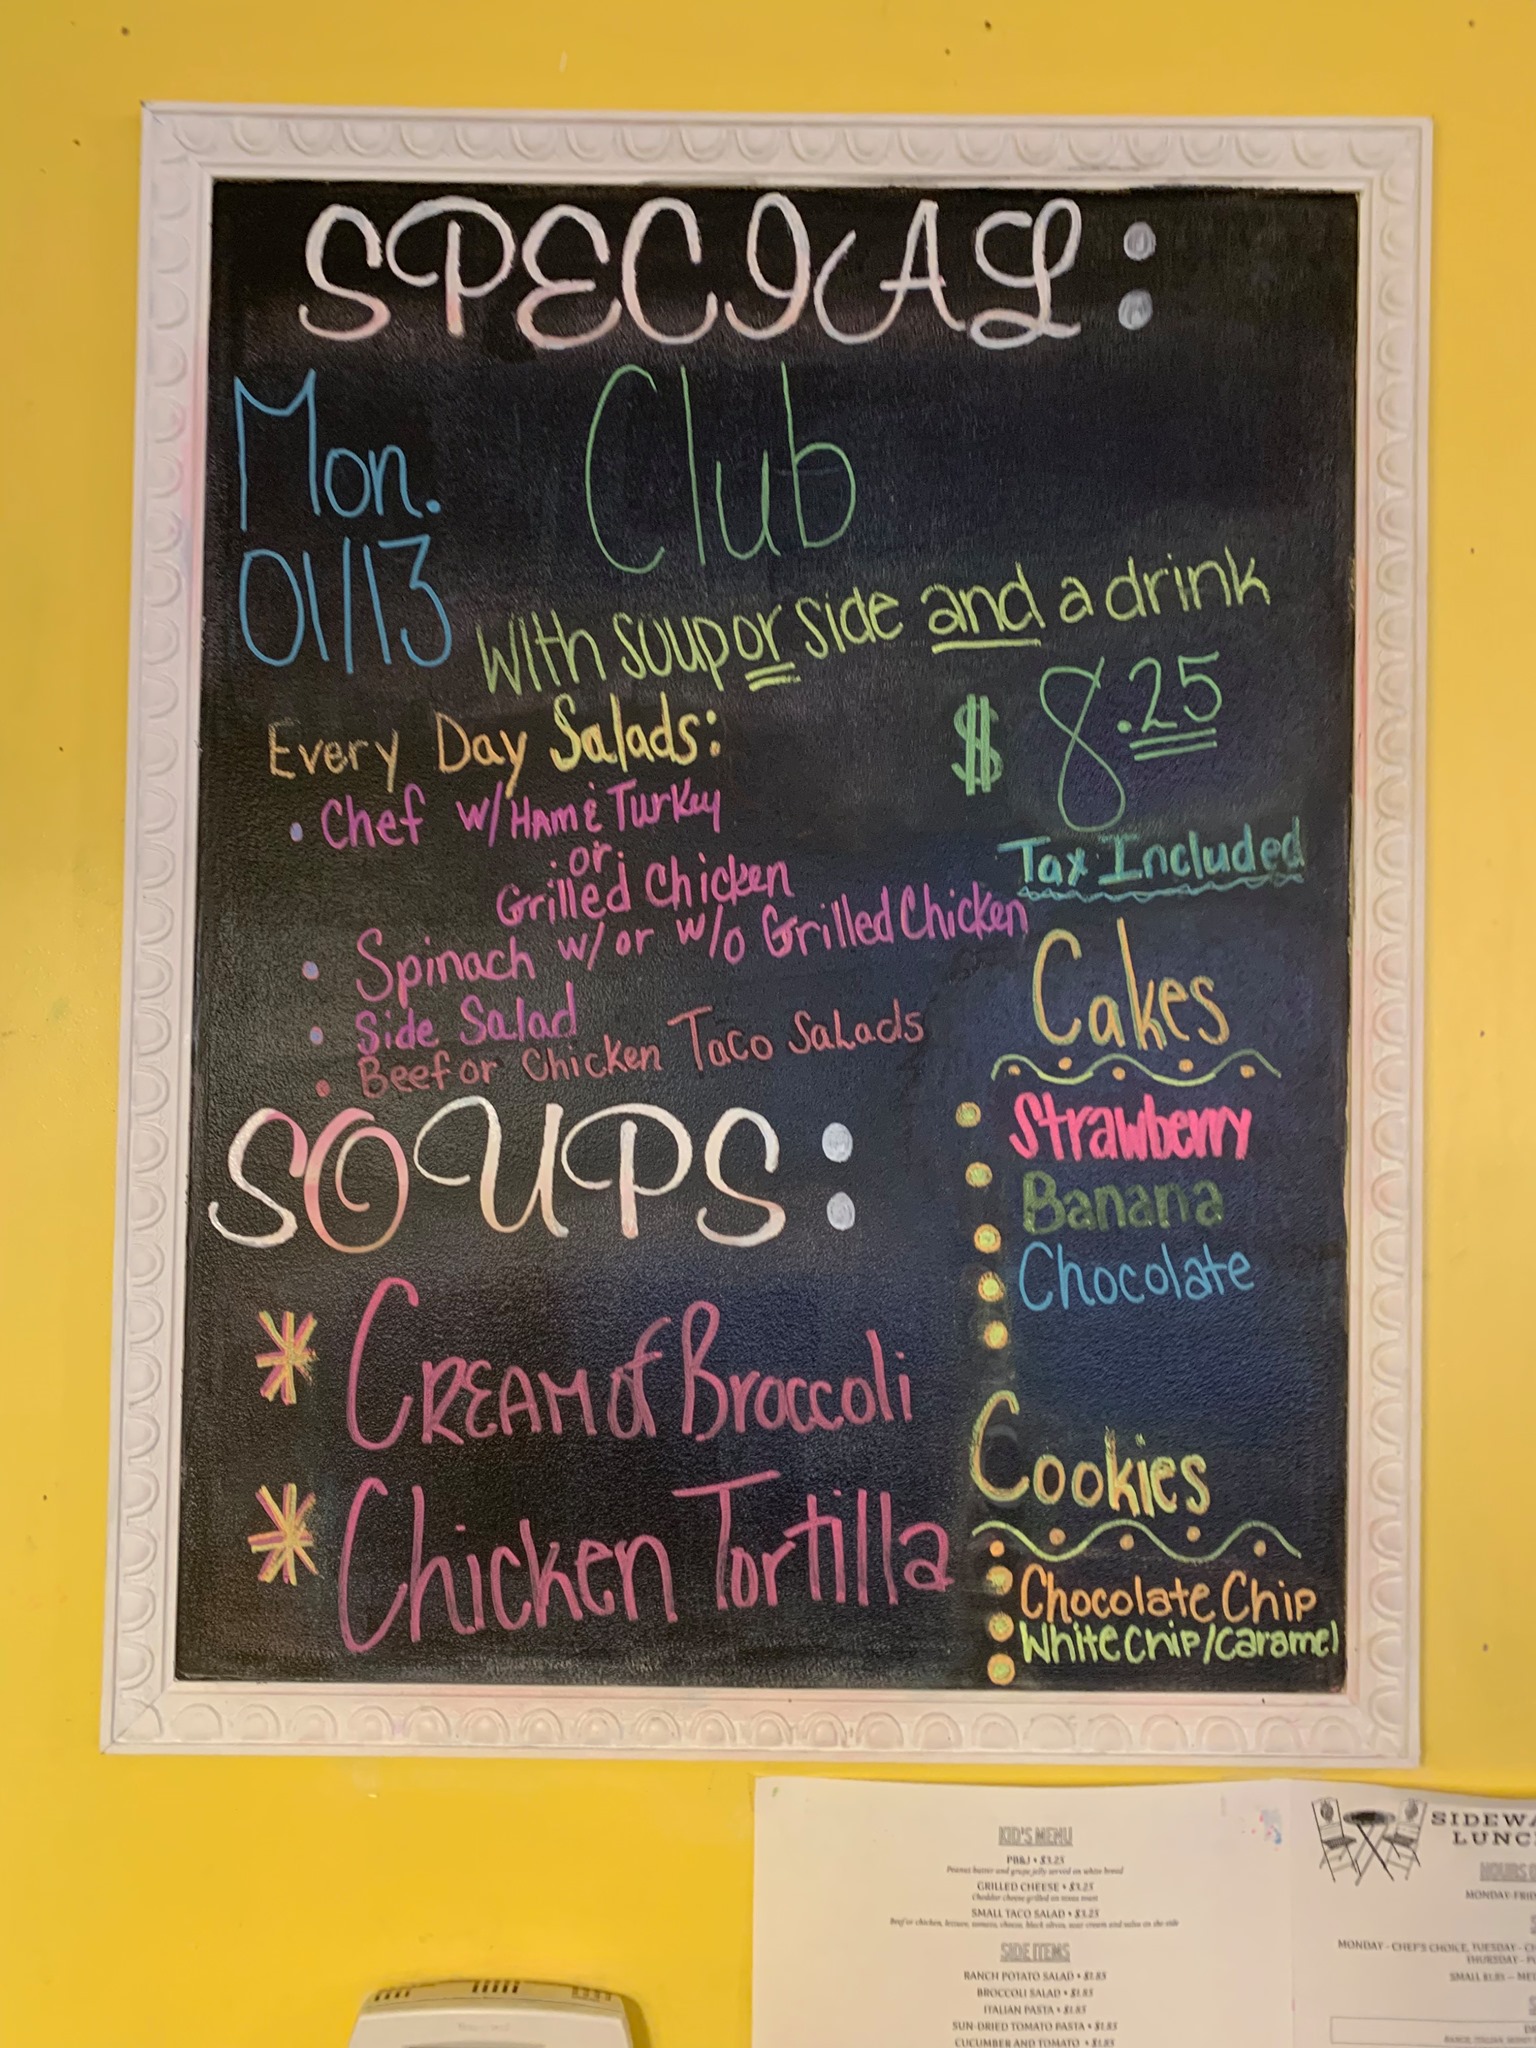 SPECIAL:
Mon.
01/13
Club
With soup or side and a drink
$8.25
Tax Included
Every Day Salads:
• Chef w/ HAM & Turkey
or
Grilled Chicken
• Spinach w/ or w/o Grilled Chicken
• Side Salad
• Beef or Chicken Taco Salads
SOUPS:
* CREAM of Broccoli
* Chicken Tortilla
Cakes
Strawberry
Banana
Chocolate
Cookies
Chocolate Chip
White Chip/Caramel
KID'S MENU
PB&J • $3.25
Peanut butter and grape jelly served on white bread
GRILLED CHEESE • $3.25
Cheddar cheese grilled on texas toast
SMALL TACO SALAD • $3.25
Beef or chicken, lettuce, tomato, cheese, black olives, sour cream and salsa on the side
SIDE ITEMS
RANCH POTATO SALAD • $1.85
BROCCOLI SALAD • $1.85
ITALIAN PASTA • $1.85
SUN-DRIED TOMATO PASTA • $1.85
CUCUMBER AND TOMATO • $1.85
SIDEWA
LUNC
HOURS O
MONDAY-FRID
MONDAY - CHEF'S CHOICE, TUESDAY - CH
THURSDAY - PO
SMALL $1.85 - ME